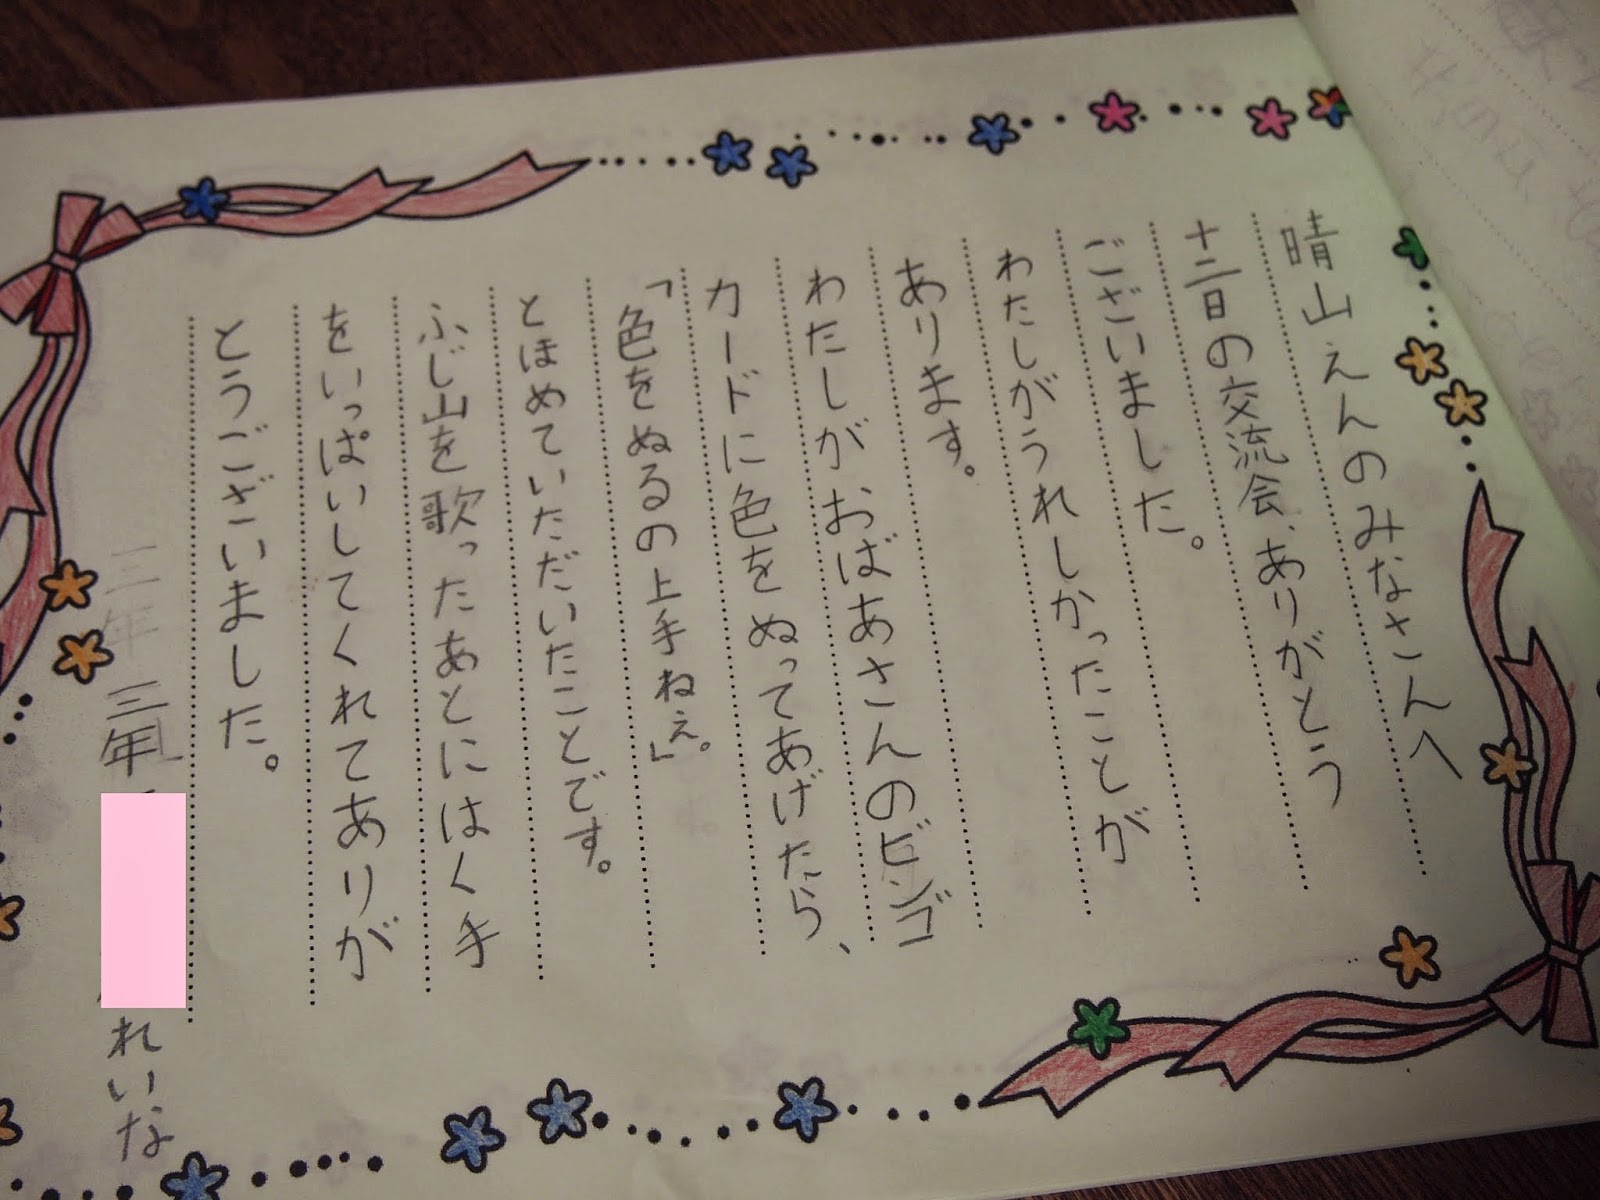 晴山えんのみなさんへ
十二日の交流会、ありがとう
ございました。
わたしがうれしかったことが
あります。
わたしがおばあさんのビンゴ
カードに色をぬってあげたら、
「色をぬるの上手ねぇ。」
とほめていただいたことです。
ふじ山を歌ったあとにはく手
をいっぱいしてくれてありが
とうございました。
三年 れいな